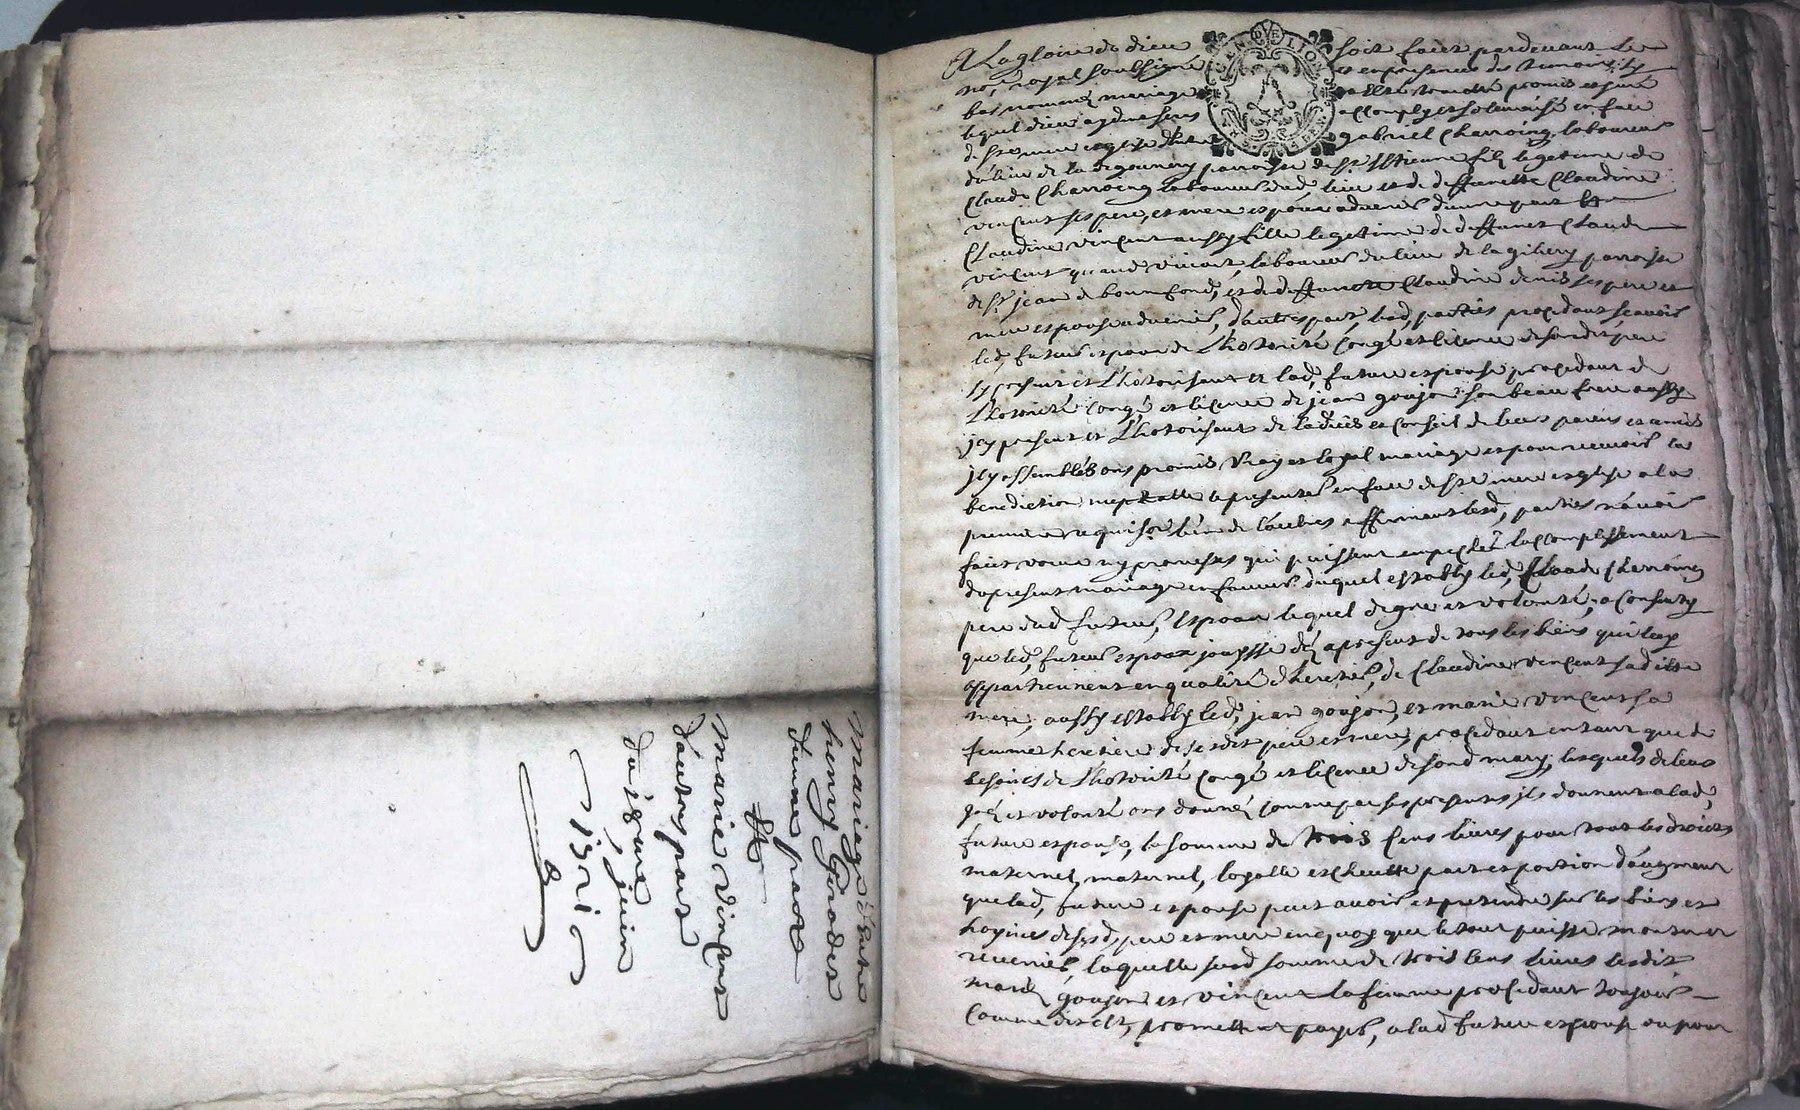 Mariage d'entre
henry
d'unne part
&
Marie Vincent
d'autre part
du
juin
A La gloire de dieu soit faict pardevant le
no.re royal soubsigné et en presence des temoins
bas nommés mariage a esté traitté promis et juré
lequel dieu aydant sera accomply et solemnisé en face
de s.te mere esglise d'entre gabriel Charroing laboureur
du lieu de la parroisse de s.t Estienne filz legetime de
Claude Charroing laboureur dud. lieu et de deffunctte Claudine
vincent ses pere et mere espoux advenir d'unne part Et
CLaudine vincent aussy fille legettime de deffunct Claude
vincent quand vivoit laboureur du lieu de la parroisse
de s.t jean de bonnefond, et de deffuncte Claudine denis ses pere et
mere espouse advenir, d'autre part, lesd. parties procedant scavoir
led. futeur espoux de L'hotorité Congé et licence de sondit pere
jcy present et L'hotorisant et lad. future espouse procedant de
L'hotorité Congé et licence de jean goujon son beau frere aussy
jcy present et L'hotorisant de l'advis et Conseil de leurs parens et amis
jcy assemblés ont promis vray et loyal mariage et pour recevoir la
benediction nuptialle se presenter en face de s.te mere esglise a la
premiere requis.on l'un de l'autre affirmant lesd. parties n'avoir
faict voeux ny promesses qui puissent empecher l'accomplissement
du present mariage en faveur duquel estably led. Claude Cherroing
pere dud. futeur Espoux lequel de gré et volonté, a Consenty
que led. futeur espoux jouysse dés a present de tous les biens qui luy
appartiennent en qualité d'heretier, de Claudine vincent sadite
mere, aussy estably led. jean goujon, et marie vincent sa
femme heretiere de sesdit pere et mere, procedant en tant que de
besoins de L'hotorité Congé et licence de sond. mary, lesquels de leur
gré et volonté ont donné, comme par ses presentes jls donnent a lad.
future espouse, la somme de trois Cens livres pour tout les droicts
maternel, maternel, legalle escheutte part et portion d'augment
que lad. future espouse peut avoir et pretendre sur les biens et
hoyries desesd. pere et mere en quoy que le tout puisse monter et
revenir, laquelle susd. somme de trois Cens livres lesdit
mariés goujon et vincent la femme procedant toujours
Comme dessus, promettent payer, a lad. future espouse ou pour